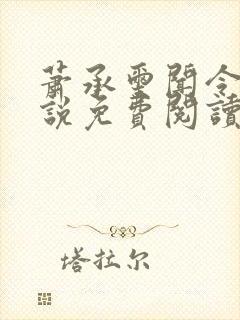 蕭承聖聞令
說免費閱讀
塔拉尔